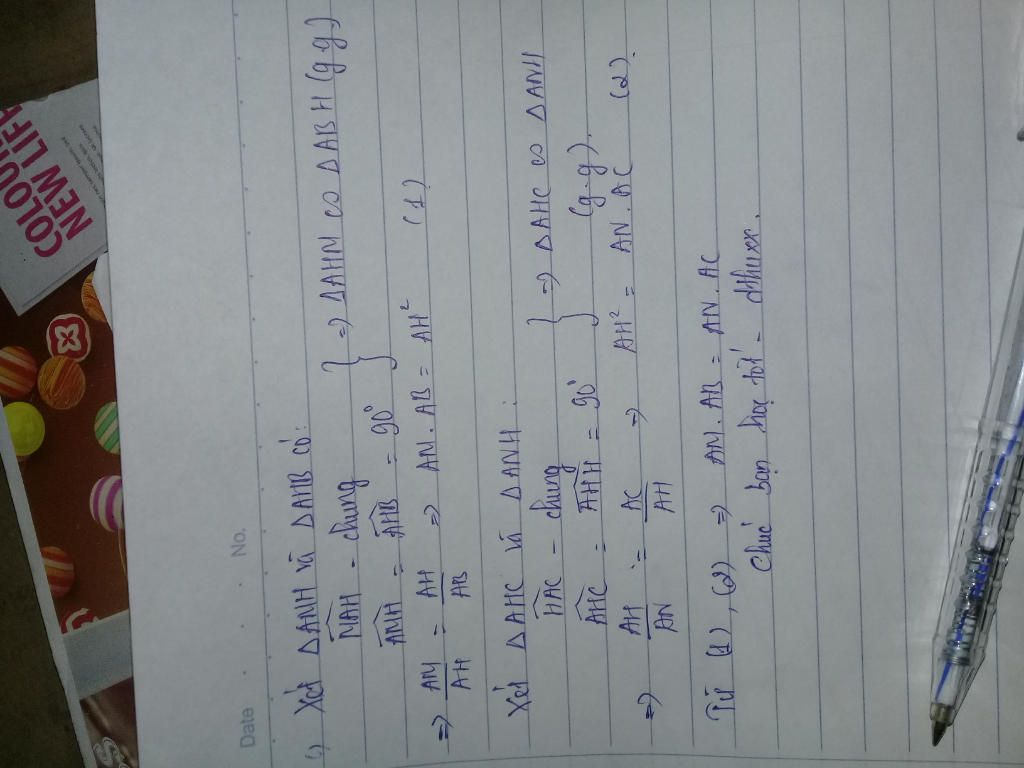 COLOU
NEW LIFE
Date No.
c) Xét ΔAMH và ΔAHB có:
MAH - chung
AMH = AHB = 90°
} => ΔAHM ∽ ΔABH (g.g)
=> AM/AH = AH/AB => AM.AB = AH² (1)
Xét ΔAHC và ΔANH:
HAC - chung
AHC = ANH = 90°
} => ΔAHC ∽ ΔANH
(g-g).
=> AH/AN = AC/AH => AH² = AN.AC (2).
Từ (1), (2) => AM.AB = AN.AC
Chúc bạn học tốt -